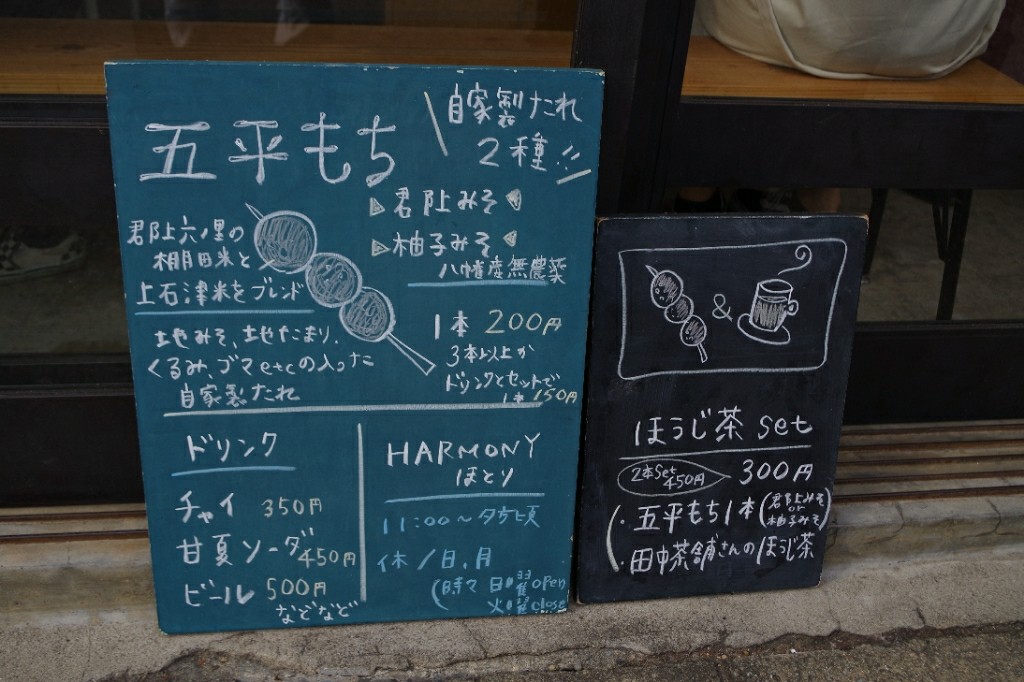 五平もち
自家製たれ
2種!!
郡上みそ
柚子みそ
八幡産無農薬
郡上六ノ里の
棚田米と
上石津米をブレンド
地みそ、地たまり、
くるみ、ゴマetcの入った
自家製たれ
1本 200円
3本以上か
ドリンクとセットで
1本150円
ドリンク
チャイ 350円
甘夏ソーダ 450円
ビール 500円
などなど
HARMONY
ほとり
11:00〜夕方頃
休/日,月
(時々 日曜open
火曜close
&
ほうじ茶 set
2本set 450円 300円
・五平もち1本(郡上みそ or 柚子みそ)
・田中茶舗さんのほうじ茶